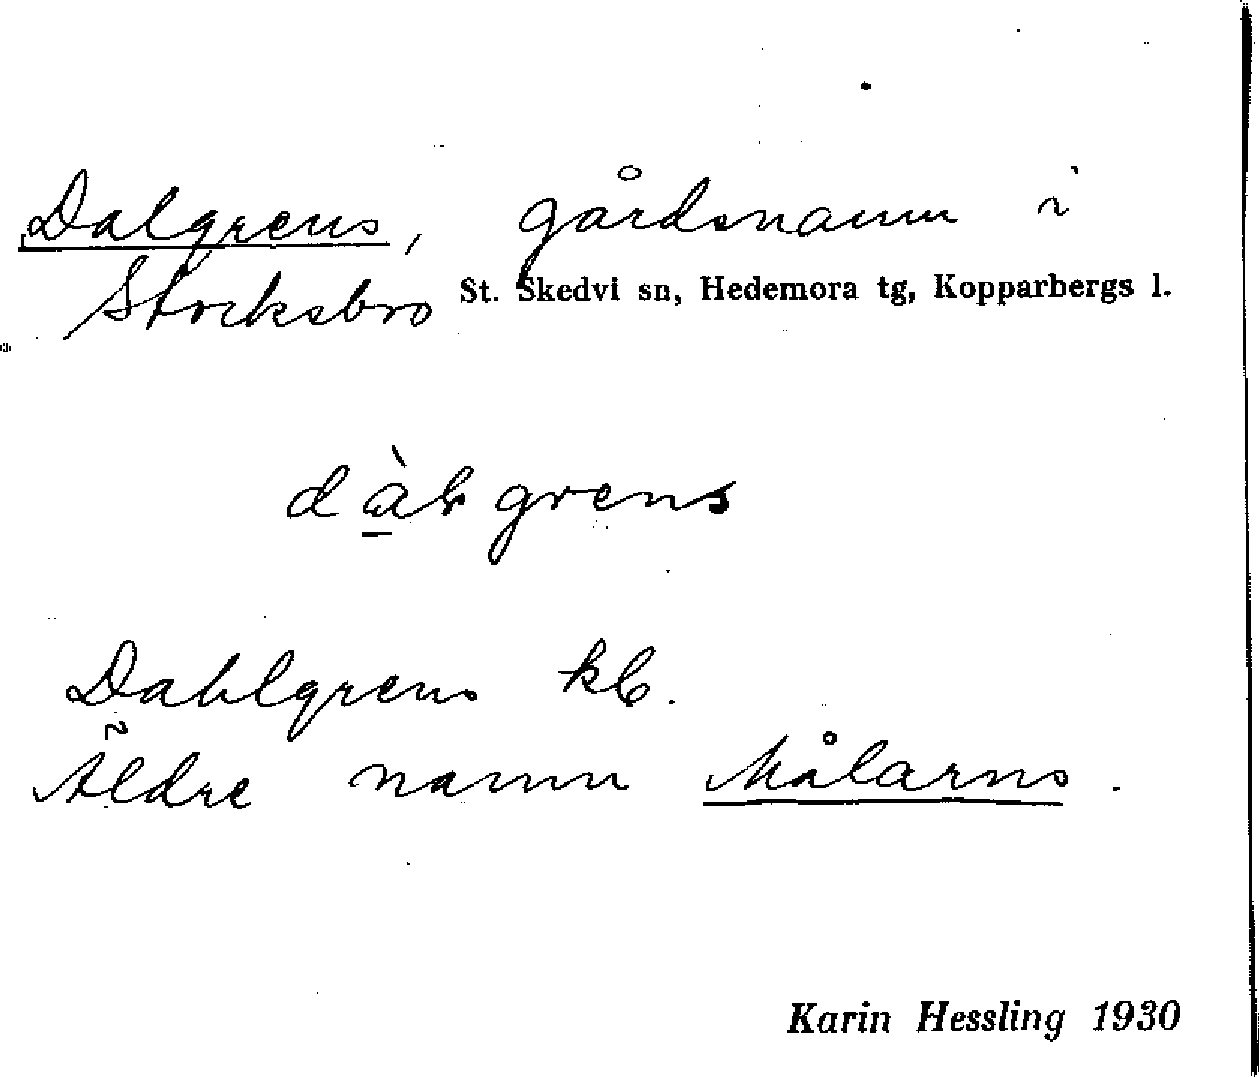 Dalgrens, gårdsnamn i
Stocksbro St. Skedvi sn, Hedemora tg, Kopparbergs l.
grens
Dahlgrens kb.
Äldre namn Målarns.
Karin Hessling 1930